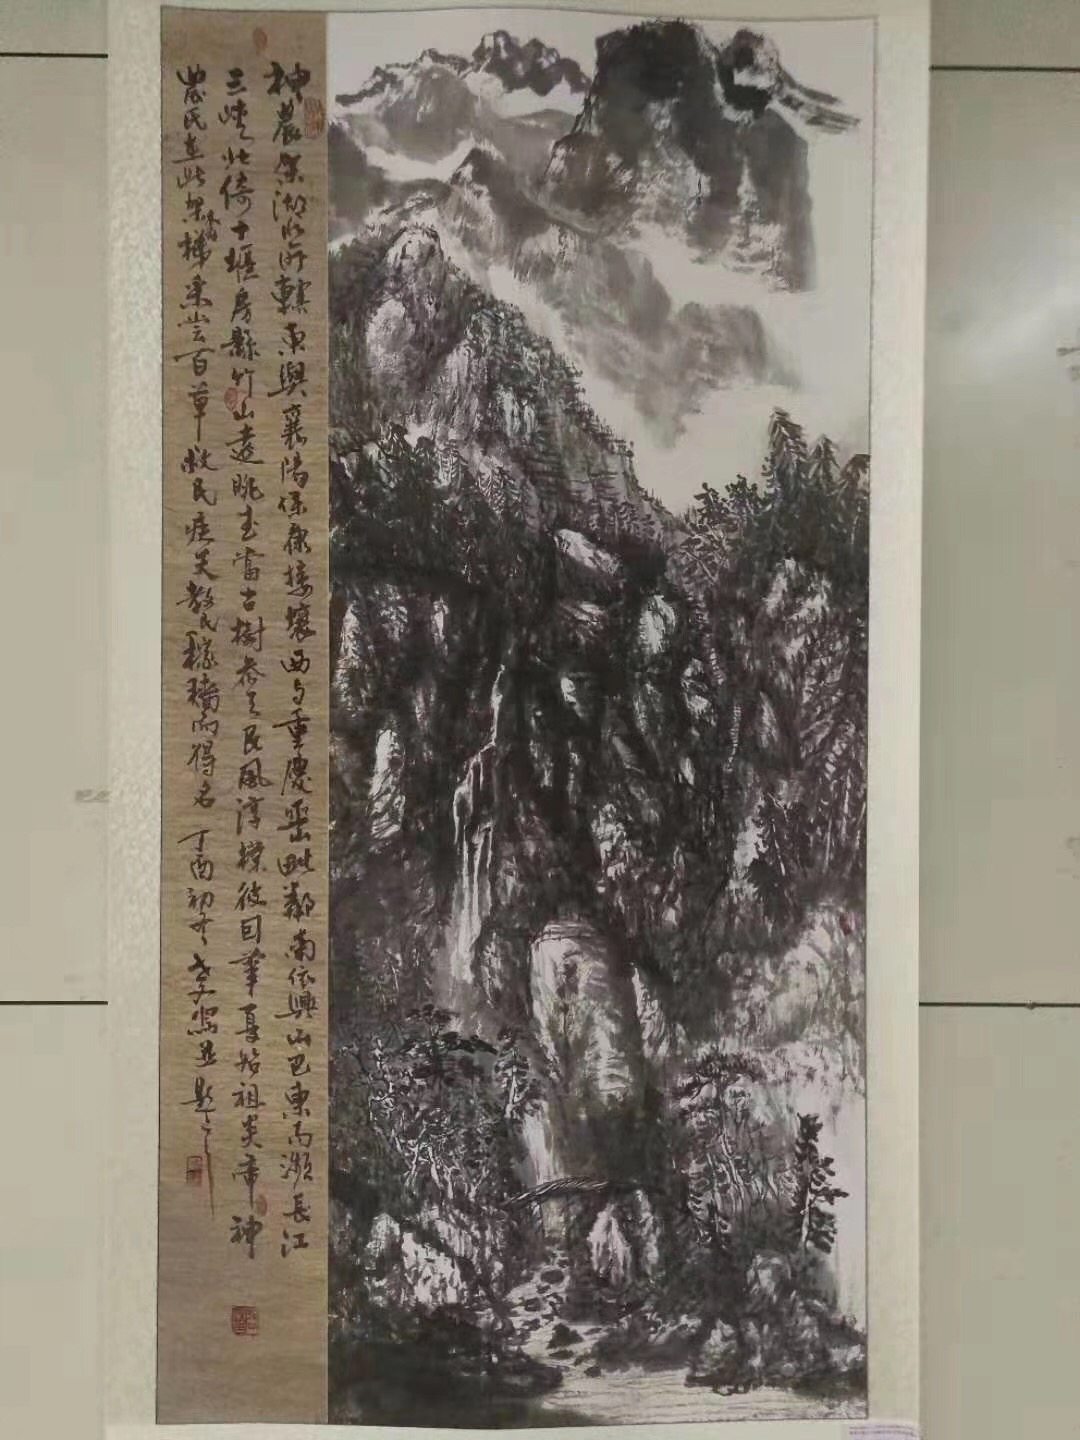 神農架湖北所轄東與襄陽保康接壤西与重慶巫山毗鄰南依興山巴東而瀕長江
三峽北倚十堰房縣竹山遠眺武當古樹参天民風淳樸彼因華夏始祖炎帝神
農氏在此架木梯采嚐百草救民疾夭教民稼穡而得名 丁酉初冬 寫並題之